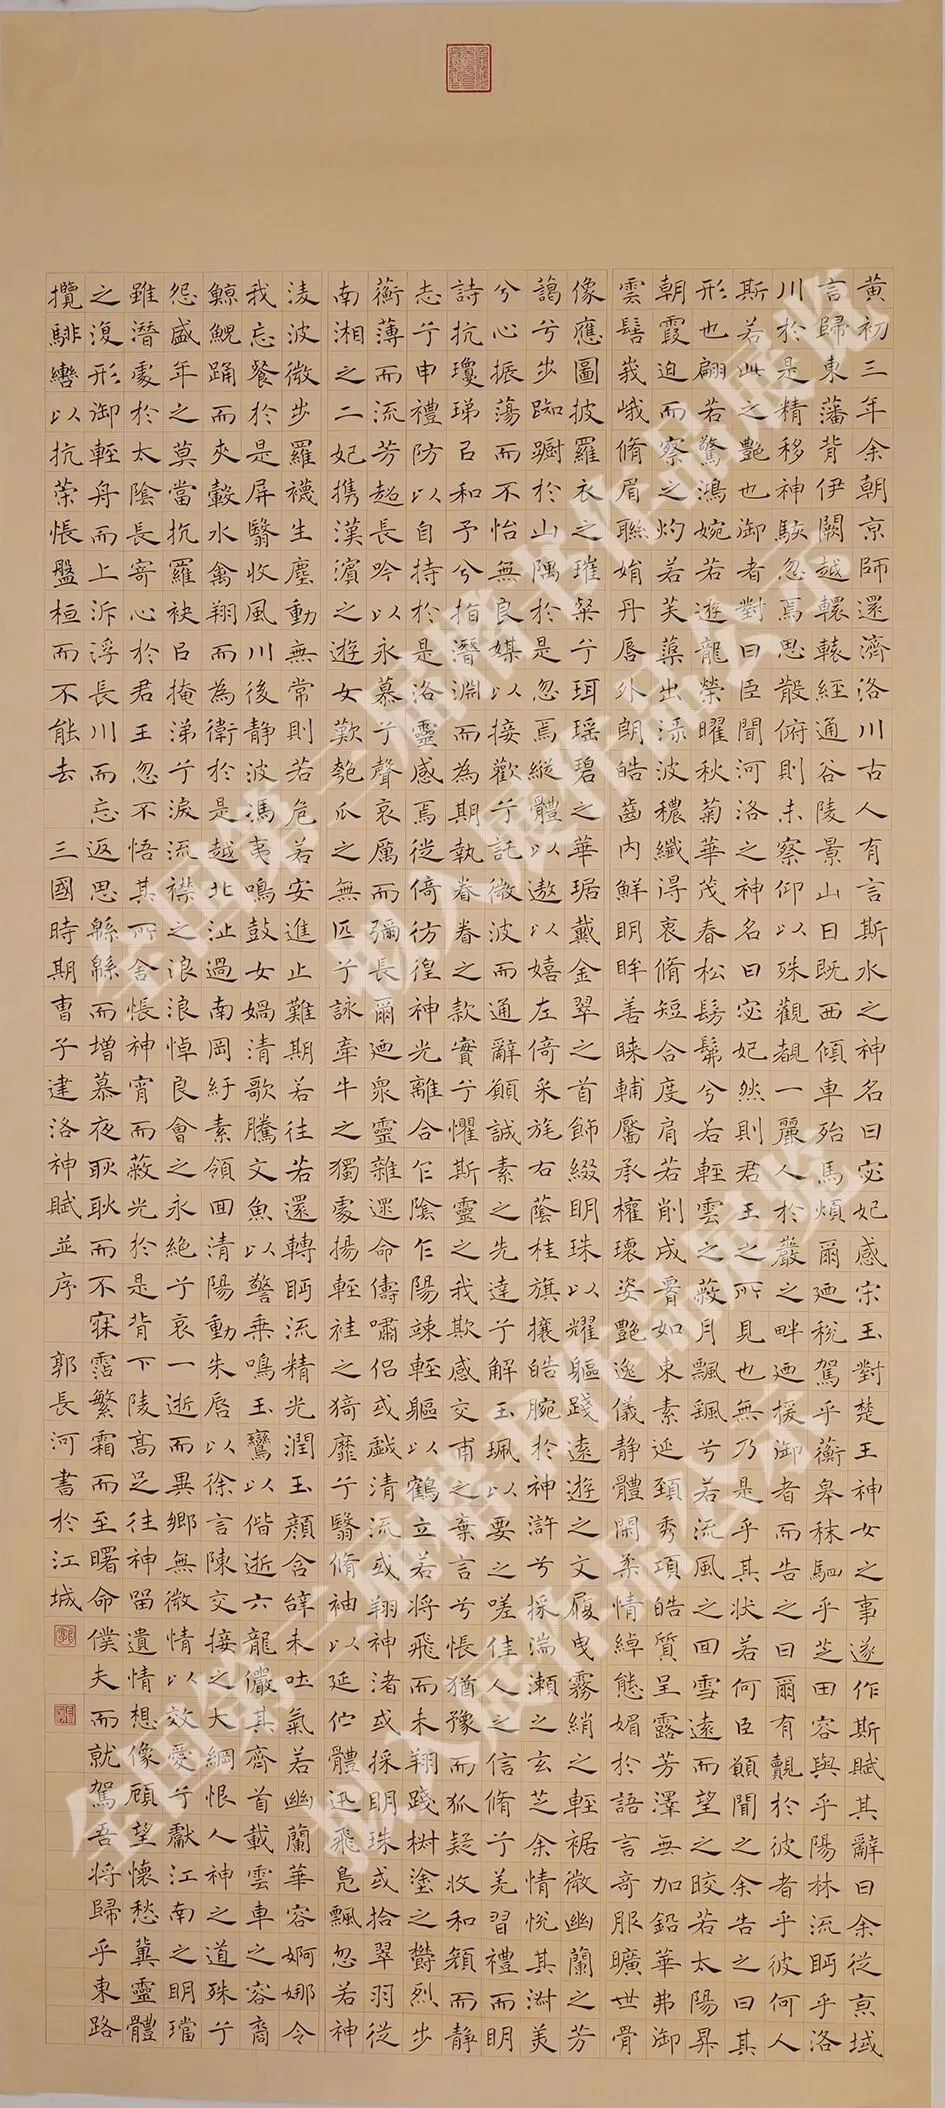 黃初三年余朝京師還濟洛川古人有言斯水之神名曰宓妃感宋玉對楚王神女之事遂作斯賦其辭曰余從京域
言歸東藩背伊闕越轘轅經通谷陵景山日既西傾車殆馬煩爾迺稅駕乎蘅皋秣駟乎芝田容與乎陽林流眄乎洛
川於是精移神駭忽焉思散俯則未察仰以殊觀覩一麗人於巖之畔迺援御者而告之曰爾有覿於彼者乎彼何人
斯若此之艷也御者對曰臣聞河洛之神名曰宓妃然則君王之所見也無乃是乎其狀若何臣願聞之余告之曰其
形也翩若驚鴻婉若遊龍榮曜秋菊華茂春松髣髴兮若輕雲之蔽月飄颻兮若流風之回雪遠而望之皎若太陽昇
朝霞迫而察之灼若芙蕖出淥波穠纖得衷脩短合度肩若削成腰如束素延頸秀項皓質呈露芳澤無加鉛華弗御
雲髻峩峨脩眉聯娟丹唇外朗皓齒內鮮明眸善睞輔靨承權瓌姿艷逸儀静體閑柔情綽態媚於語言奇服曠世骨
像應圖披羅衣之璀粲兮珥瑤碧之華琚戴金翠之首飾綴明珠以耀軀踐遠遊之文履曳霧綃之輕裾微幽蘭之芳
藹兮步踟躕於山隅於是忽焉縱體以遨以嬉左倚采旄右蔭桂旗攘皓腕於神滸兮採湍瀨之玄芝余情悅其淑美
兮心振蕩而不怡無良媒以接歡兮託微波而通辭願誠素之先達兮解玉珮以要之嗟佳人之信脩兮羌習禮而明
詩抗瓊珶㠯和予兮指潛淵而為期執眷眷之款實兮懼斯靈之我欺感交甫之棄言兮悵猶豫而狐疑收和顏而静
志兮申禮防以自持於是洛靈感焉徙倚彷徨神光離合乍陰乍陽竦輕軀以鶴立若將飛而未翔踐椒塗之欝烈步
蘅薄而流芳超長吟以永慕兮聲哀厲而彌長爾迺眾靈雜遝命儔嘯侶或戲清流或翔神渚或採明珠或拾翠羽從
南湘之二妃攜漢濱之遊女歎匏瓜之無匹兮詠牽牛之獨處揚輕袿之猗靡兮翳脩袖以延佇體迅飛鳧飄忽若神
淩波微步羅襪生塵動無常則若危若安進止難期若往若還轉眄流精光潤玉顏含辭未吐氣若幽蘭華容婀娜令
我忘餐於是屏翳收風川後静波馮夷鳴鼓女媧清歌騰文魚以警乘鳴玉鸞以偕逝六龍儼其齊首載雲車之容裔
鯨鯢踊而夾轂水禽翔而為衛於是越北沚過南岡紆素領回清陽動朱唇以徐言陳交接之大綱恨人神之道殊兮
怨盛年之莫當抗羅袂㠯掩涕兮淚流襟之浪浪悼良會之永絕兮哀一逝而異鄉無微情以效愛兮獻江南之明璫
雖潛處於太陰長寄心於君王忽不悟其所舍悵神宵而蔽光於是背下陵高足往神留遺情想像顧望懷愁冀靈體
之復形御輕舟而上泝浮長川而忘返思緜緜而增慕夜耿耿而不寐霑繁霜而至曙命僕夫而就駕吾將歸乎東路
攬騑轡以抗策悵盤桓而不能去 三國時期曹子建洛神賦並序 郭長河書於江城